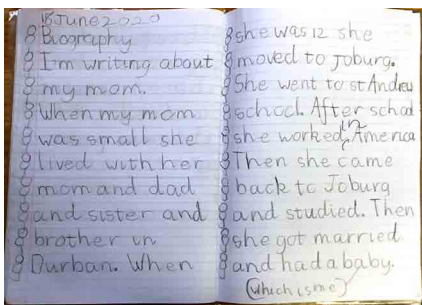 15 June 2020
Biography
I'm writing about
my mom.
When my mom
was small she
lived with her
mom and dad
and sister and
brother in
Durban. When
she was 12 she
moved to Joburg.
She went to st Andrew
school. After school
she worked in America
Then she came
back to Joburg
and studied. Then
she got married
and had a baby.
(which is me)